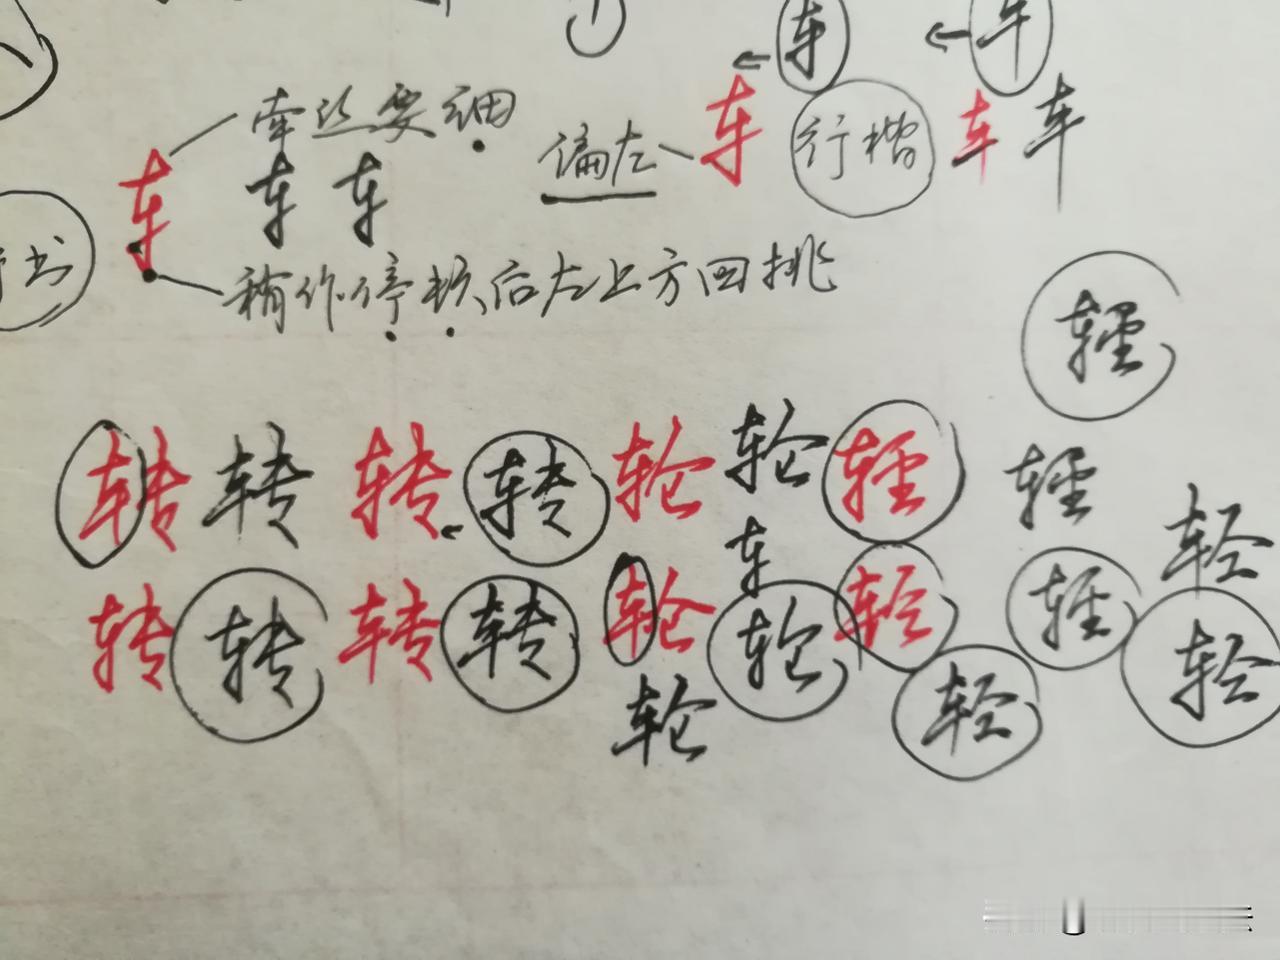 车 车
牵丝要细 偏左 车 行楷 车 车
车 车 车
书
稍作停顿后左上方回挑
轻
转 转 转 转 轮 轮 轻 轻
车 轻
转 转 转 转 轮 轮 轻 轻 轻
轮 轻